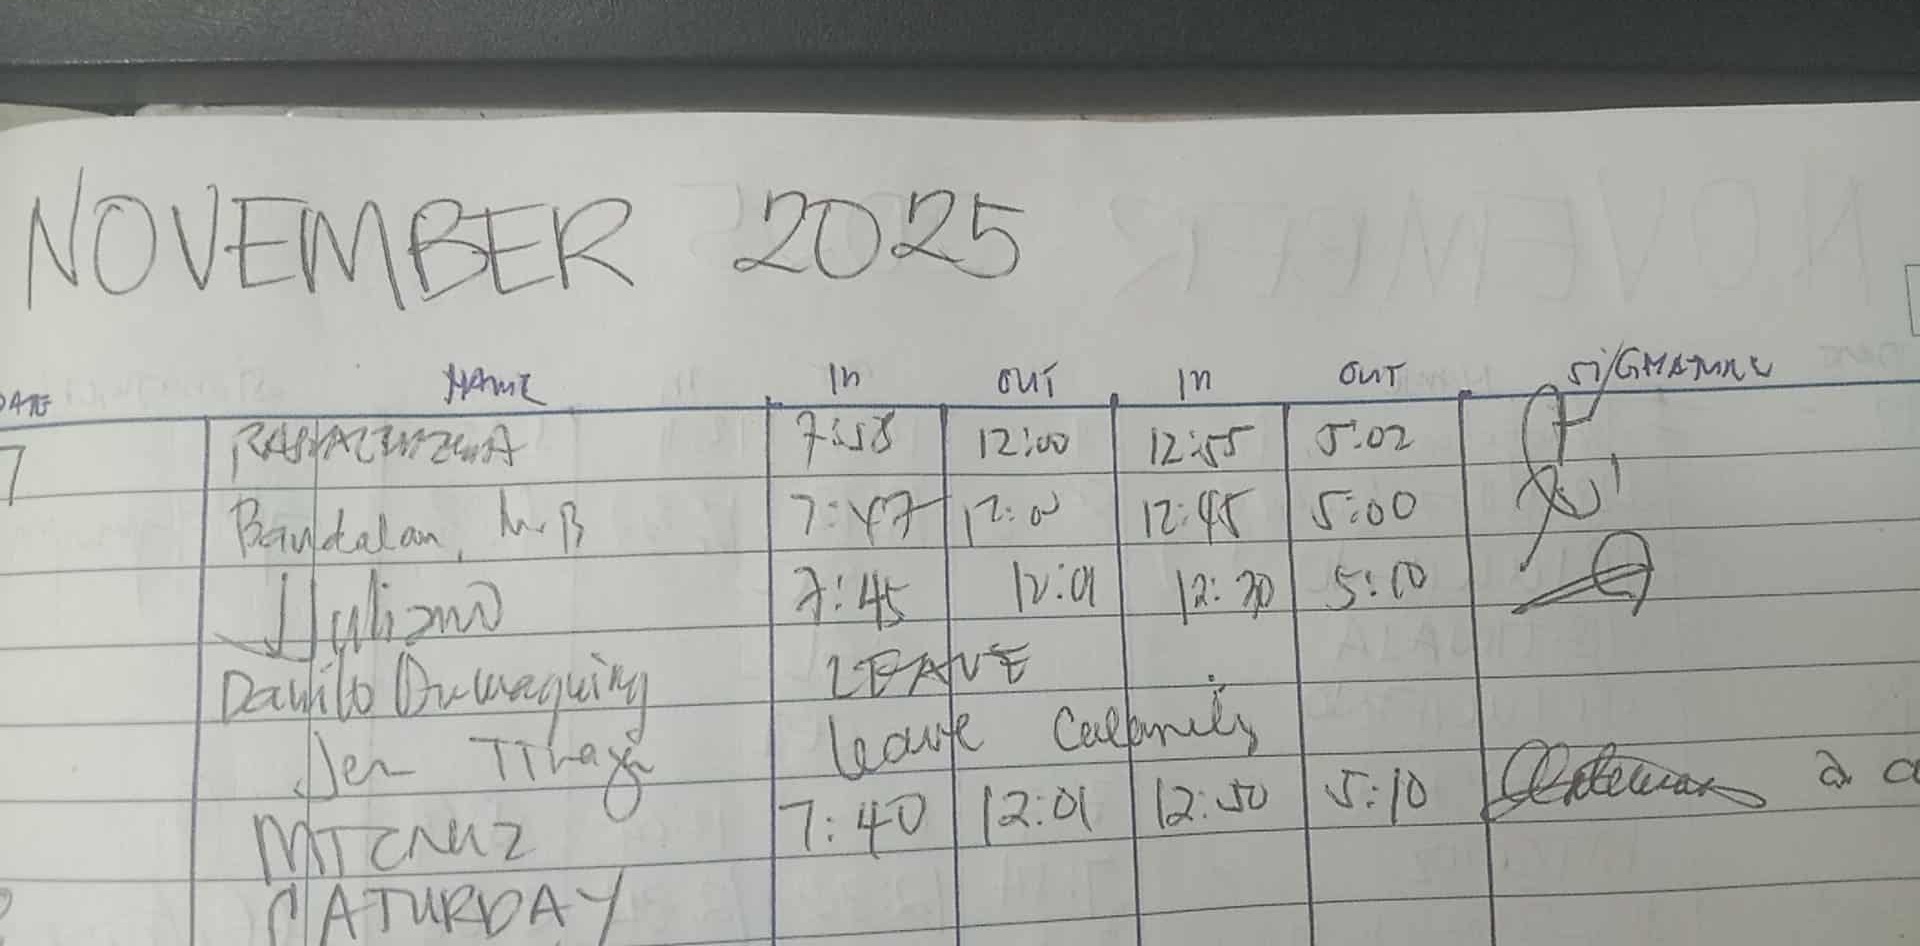 NOVEMBER 2025
DATE NAME IN OUT IN OUT SIGNATURE
7 7:58 12:00 12:55 5:02
Bandalan, M.B 7:47 12:00 12:45 5:00
Juliano 7:45 12:01 12:30 5:10
Danilo Dumaquing LEAVE
Jen leave Calamity
MTCRUZ 7:40 12:01 12:50 5:10
SATURDAY